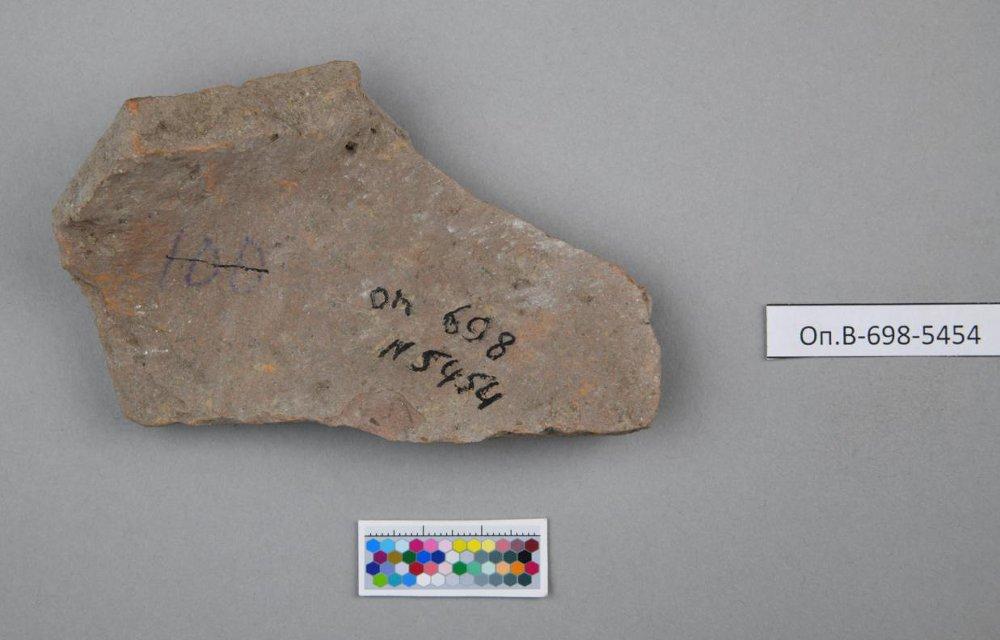 100
оп 698
N 5454
Оп.В-698-5454